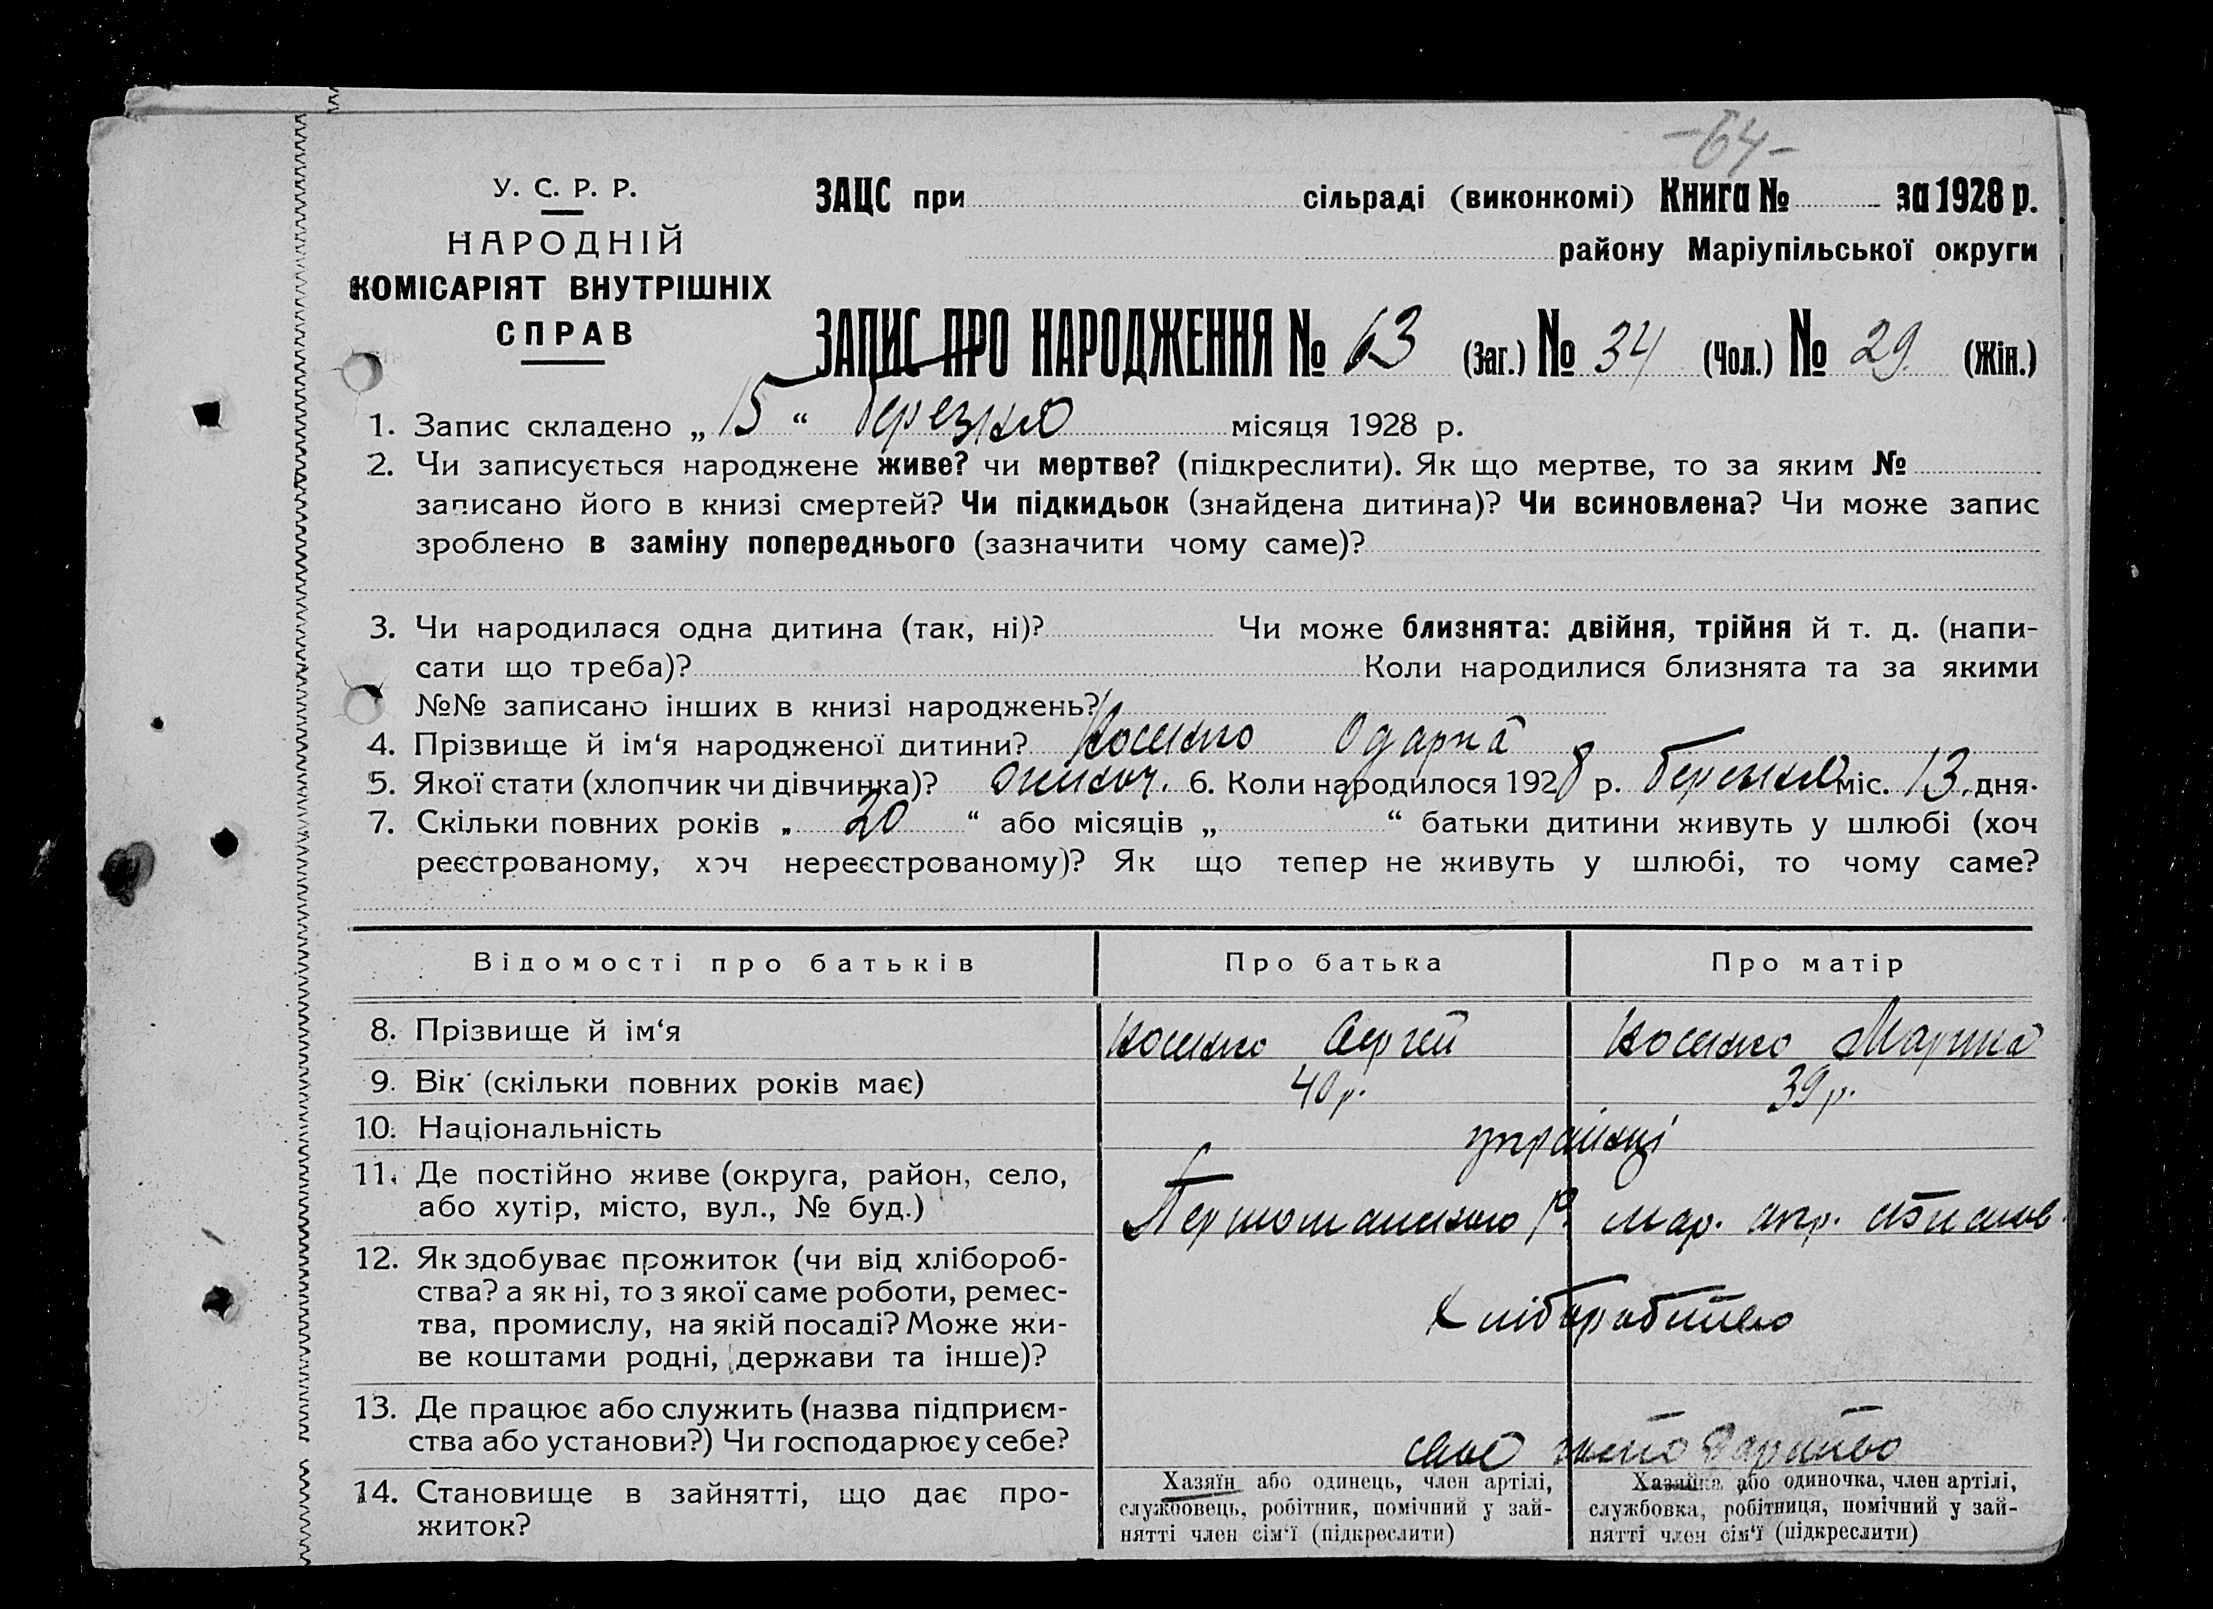 -64-
У. С. Р. Р.
НАРОДНІЙ
КОМІСАРІЯТ ВНУТРІШНІХ
СПРАВ
ЗАЦС при сільраді (виконкомі) Книга № за 1928 р.
району Маріупільської округи
ЗАПИС ПРО НАРОДЖЕННЯ № 63 (Заг.) № 34 (Чол.) № 29. (Жін.)
1. Запис складено „ 15 “ березня місяця 1928 р.
2. Чи записується народжене живе? чи мертве? (підкреслити). Як що мертве, то за яким №
записано його в книзі смертей? Чи підкидьок (знайдена дитина)? Чи всиновлена? Чи може запис
зроблено в заміну попереднього (зазначити чому саме)?
3. Чи народилася одна дитина (так, ні)? Чи може близнята: двійня, трійня й т. д. (напи-
сати що треба)? Коли народилися близнята та за якими
№№ записано інших в книзі народжень?
4. Прізвище й ім‘я народженої дитини? Одарка
5. Якої стати (хлопчик чи дівчинка)? жіноч. 6. Коли народилося 1928 р. березня міс. 13. дня.
7. Скільки повних років „ 20 “ або місяців „ “ батьки дитини живуть у шлюбі (хоч
реєстрованому, хоч нереєстрованому)? Як що тепер не живуть у шлюбі, то чому саме?
Відомості про батьків Про батька Про матір
8. Прізвище й ім‘я Сергей
9. Вік (скільки повних років має) 40 р. 39 р.
10. Національність українці
11. Де постійно живе (округа, район, село,
або хутір, місто, вул., № буд.) Мар. окр.
12. Як здобуває прожиток (чи від хлібороб-
ства? а як ні, то з якої саме роботи, ремес-
тва, промислу, на якій посаді? Може жи-
ве коштами родні, держави та інше)?
13. Де працює або служить (назва підприєм-
ства або установи?) Чи господарює у себе?
14. Становище в зайнятті, що дає про-
житок?
Хазяїн або одинець, член артілі,
службовець, робітник, помічний у зай-
нятті член сім‘ї (підкреслити)
Хазяїка або одиночка, член артілі,
службовка, робітниця, помічний у зай-
нятті член сім‘ї (підкреслити)